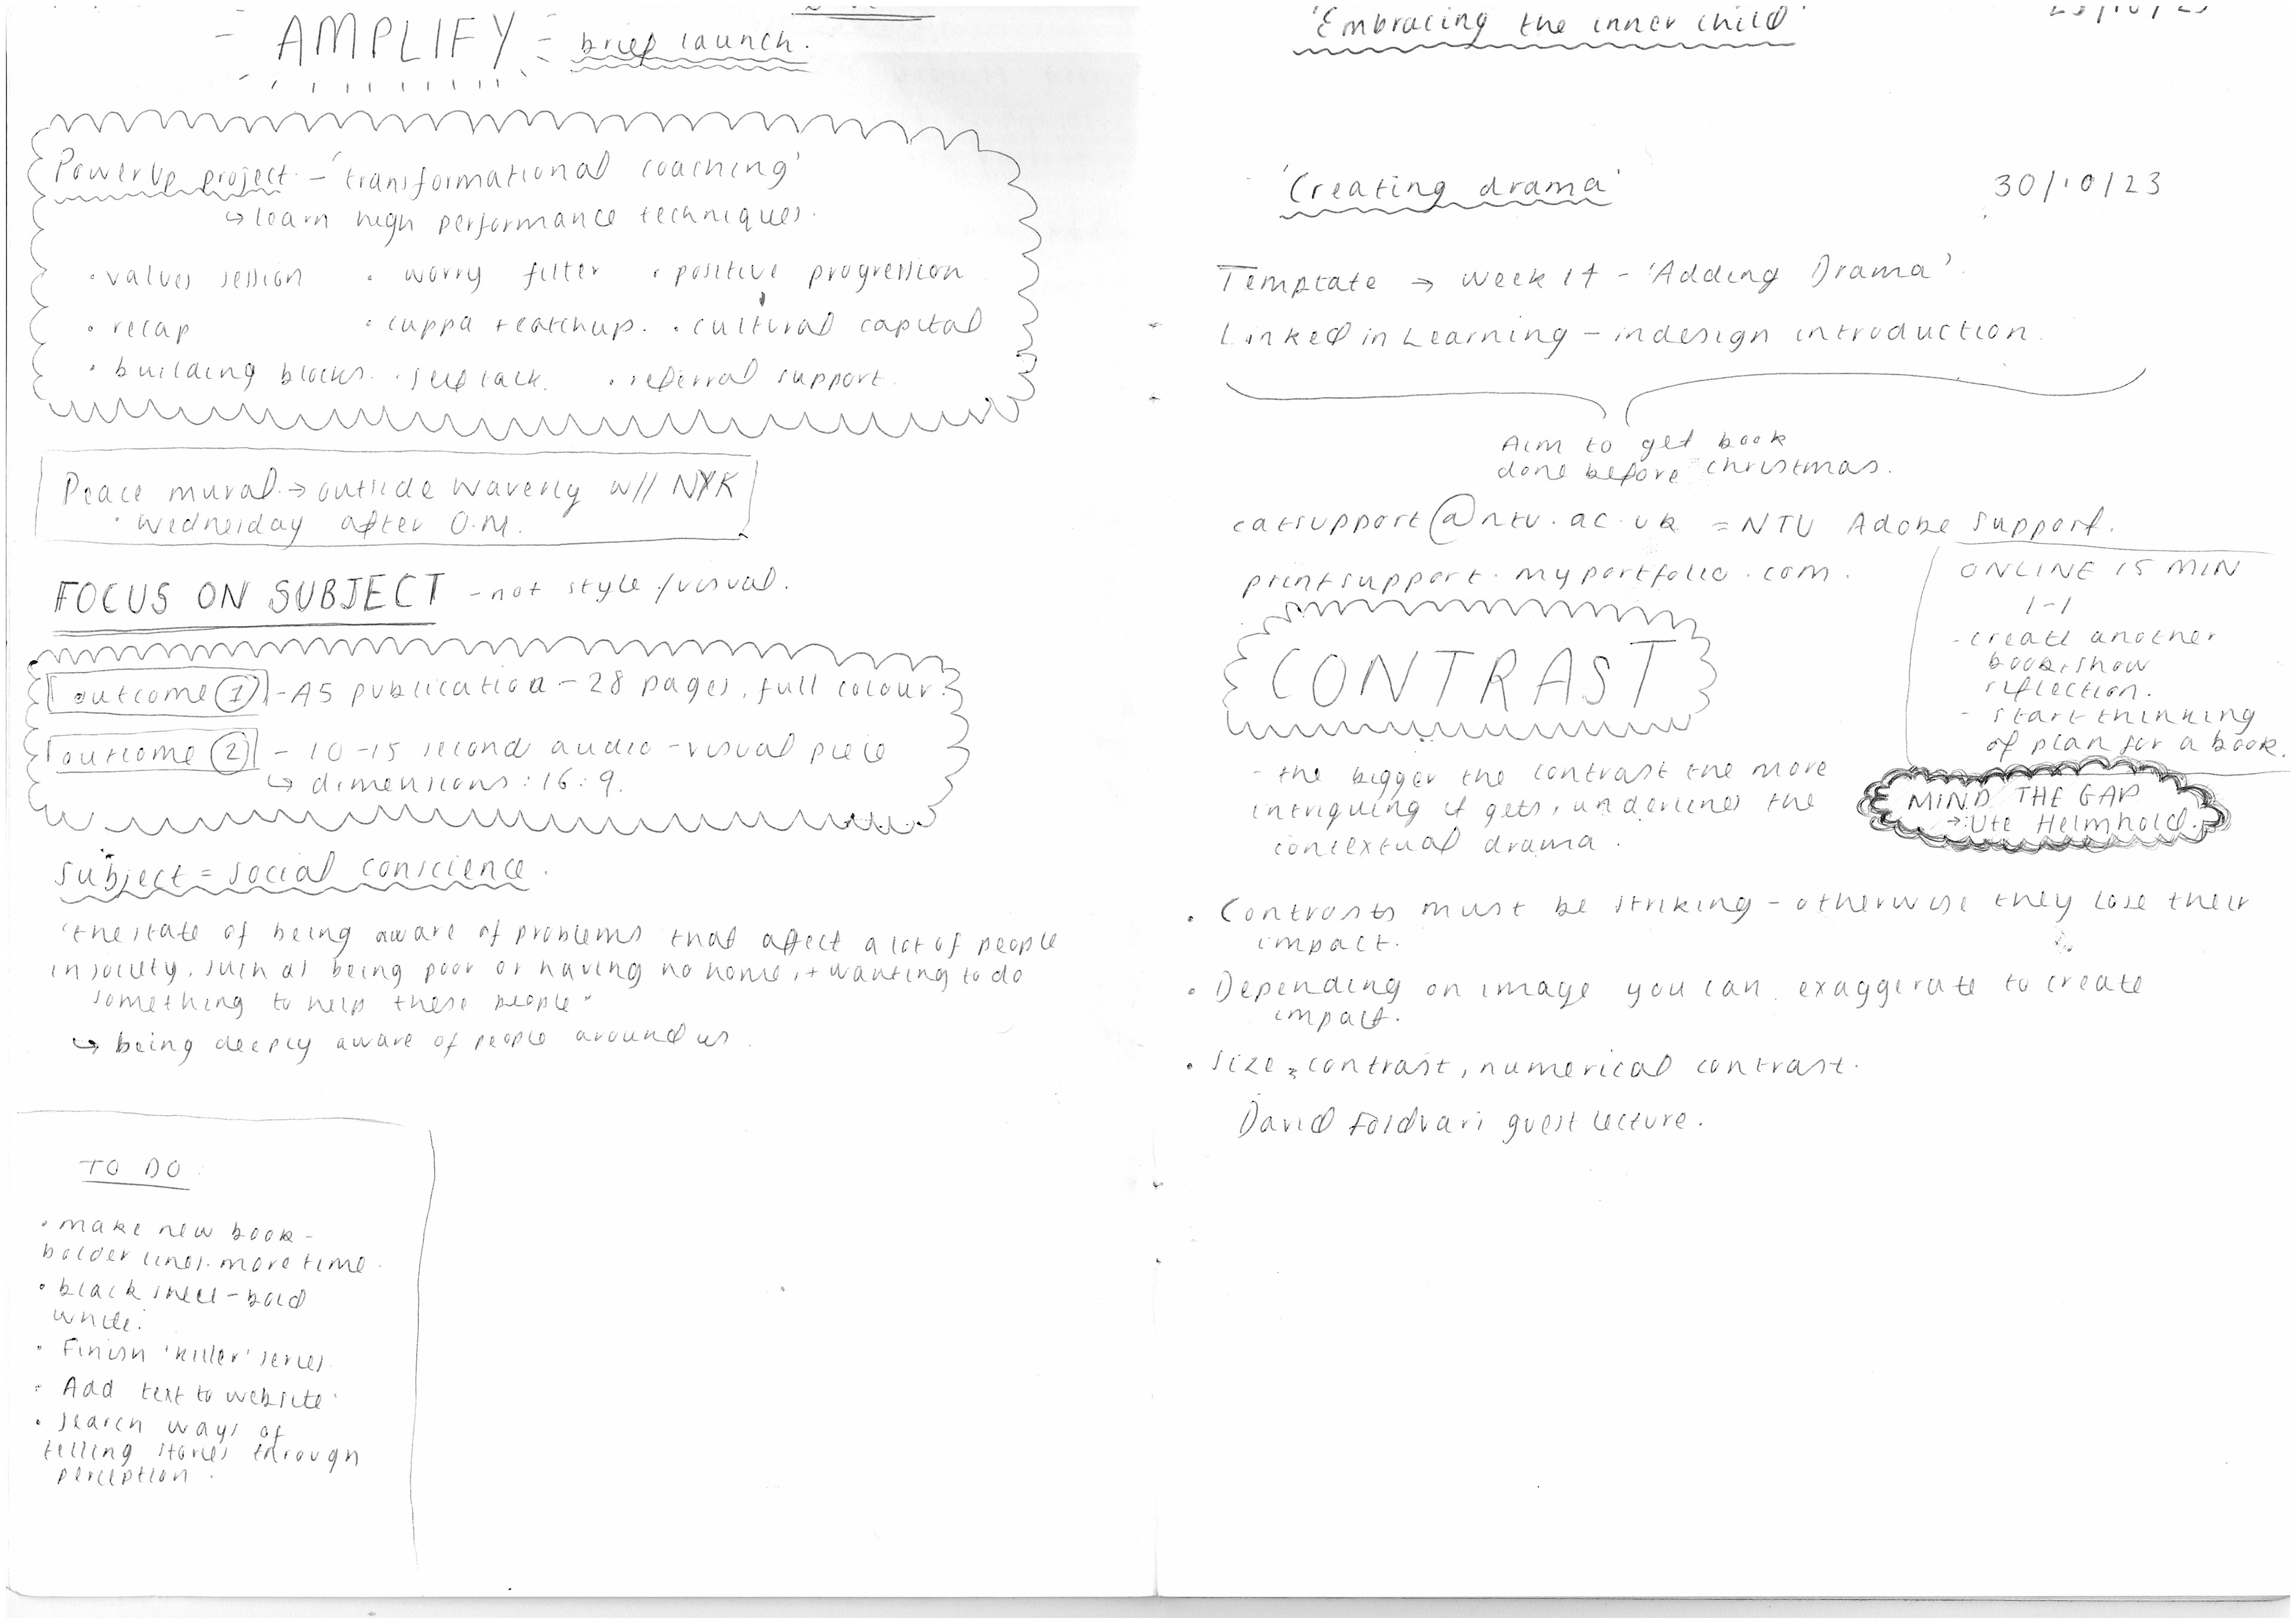 AMPLIFY - brief launch.
PowerUp project - 'transformational coaching'
↳ learn high performance techniques.
• values session • worry filter • positive progression
• recap • cuppa + catchup. • cultural capital
• building blocks. • referral support.
Peace mural → outside Waverly w// NYK
• Wednesday after O.M.
FOCUS ON SUBJECT - not style/visual.
outcome ① - A5 publication - 28 pages, full colour.
outcome ② - 10-15 second audio-visual piece
↳ dimensions: 16:9.
subject = social conscience.
"the state of being aware of problems that affect a lot of people
in society, such as being poor or having no home, + wanting to do
something to help these people"
↳ being deeply aware of people around us.
TO DO
• make new book -
bolder lines. more time.
• black sheet - bold
white.
• Finish 'killer' series
• Add text to website
• search ways of
telling stories through
perception.
'Embracing the inner child'
'Creating drama' 30/10/23
Template → week 17 - 'Adding Drama'.
Linked in Learning - indesign introduction.
Aim to get book
done before christmas.
catsupport@ntu.ac.uk = NTU Adobe support.
printsupport.myportfolio.com.
ONLINE 15 MIN
1-1
- create another
book + show
reflection.
- start thinking
of plan for a book.
CONTRAST
- the bigger the contrast the more
intriguing it gets, underlines the
contextual drama.
MIND THE GAP
→ Ute Helmhold.
• Contrasts must be striking - otherwise they lose their
impact.
• Depending on image you can exaggerate to create
impact.
• size contrast, numerical contrast.
David Foldvari guest lecture.